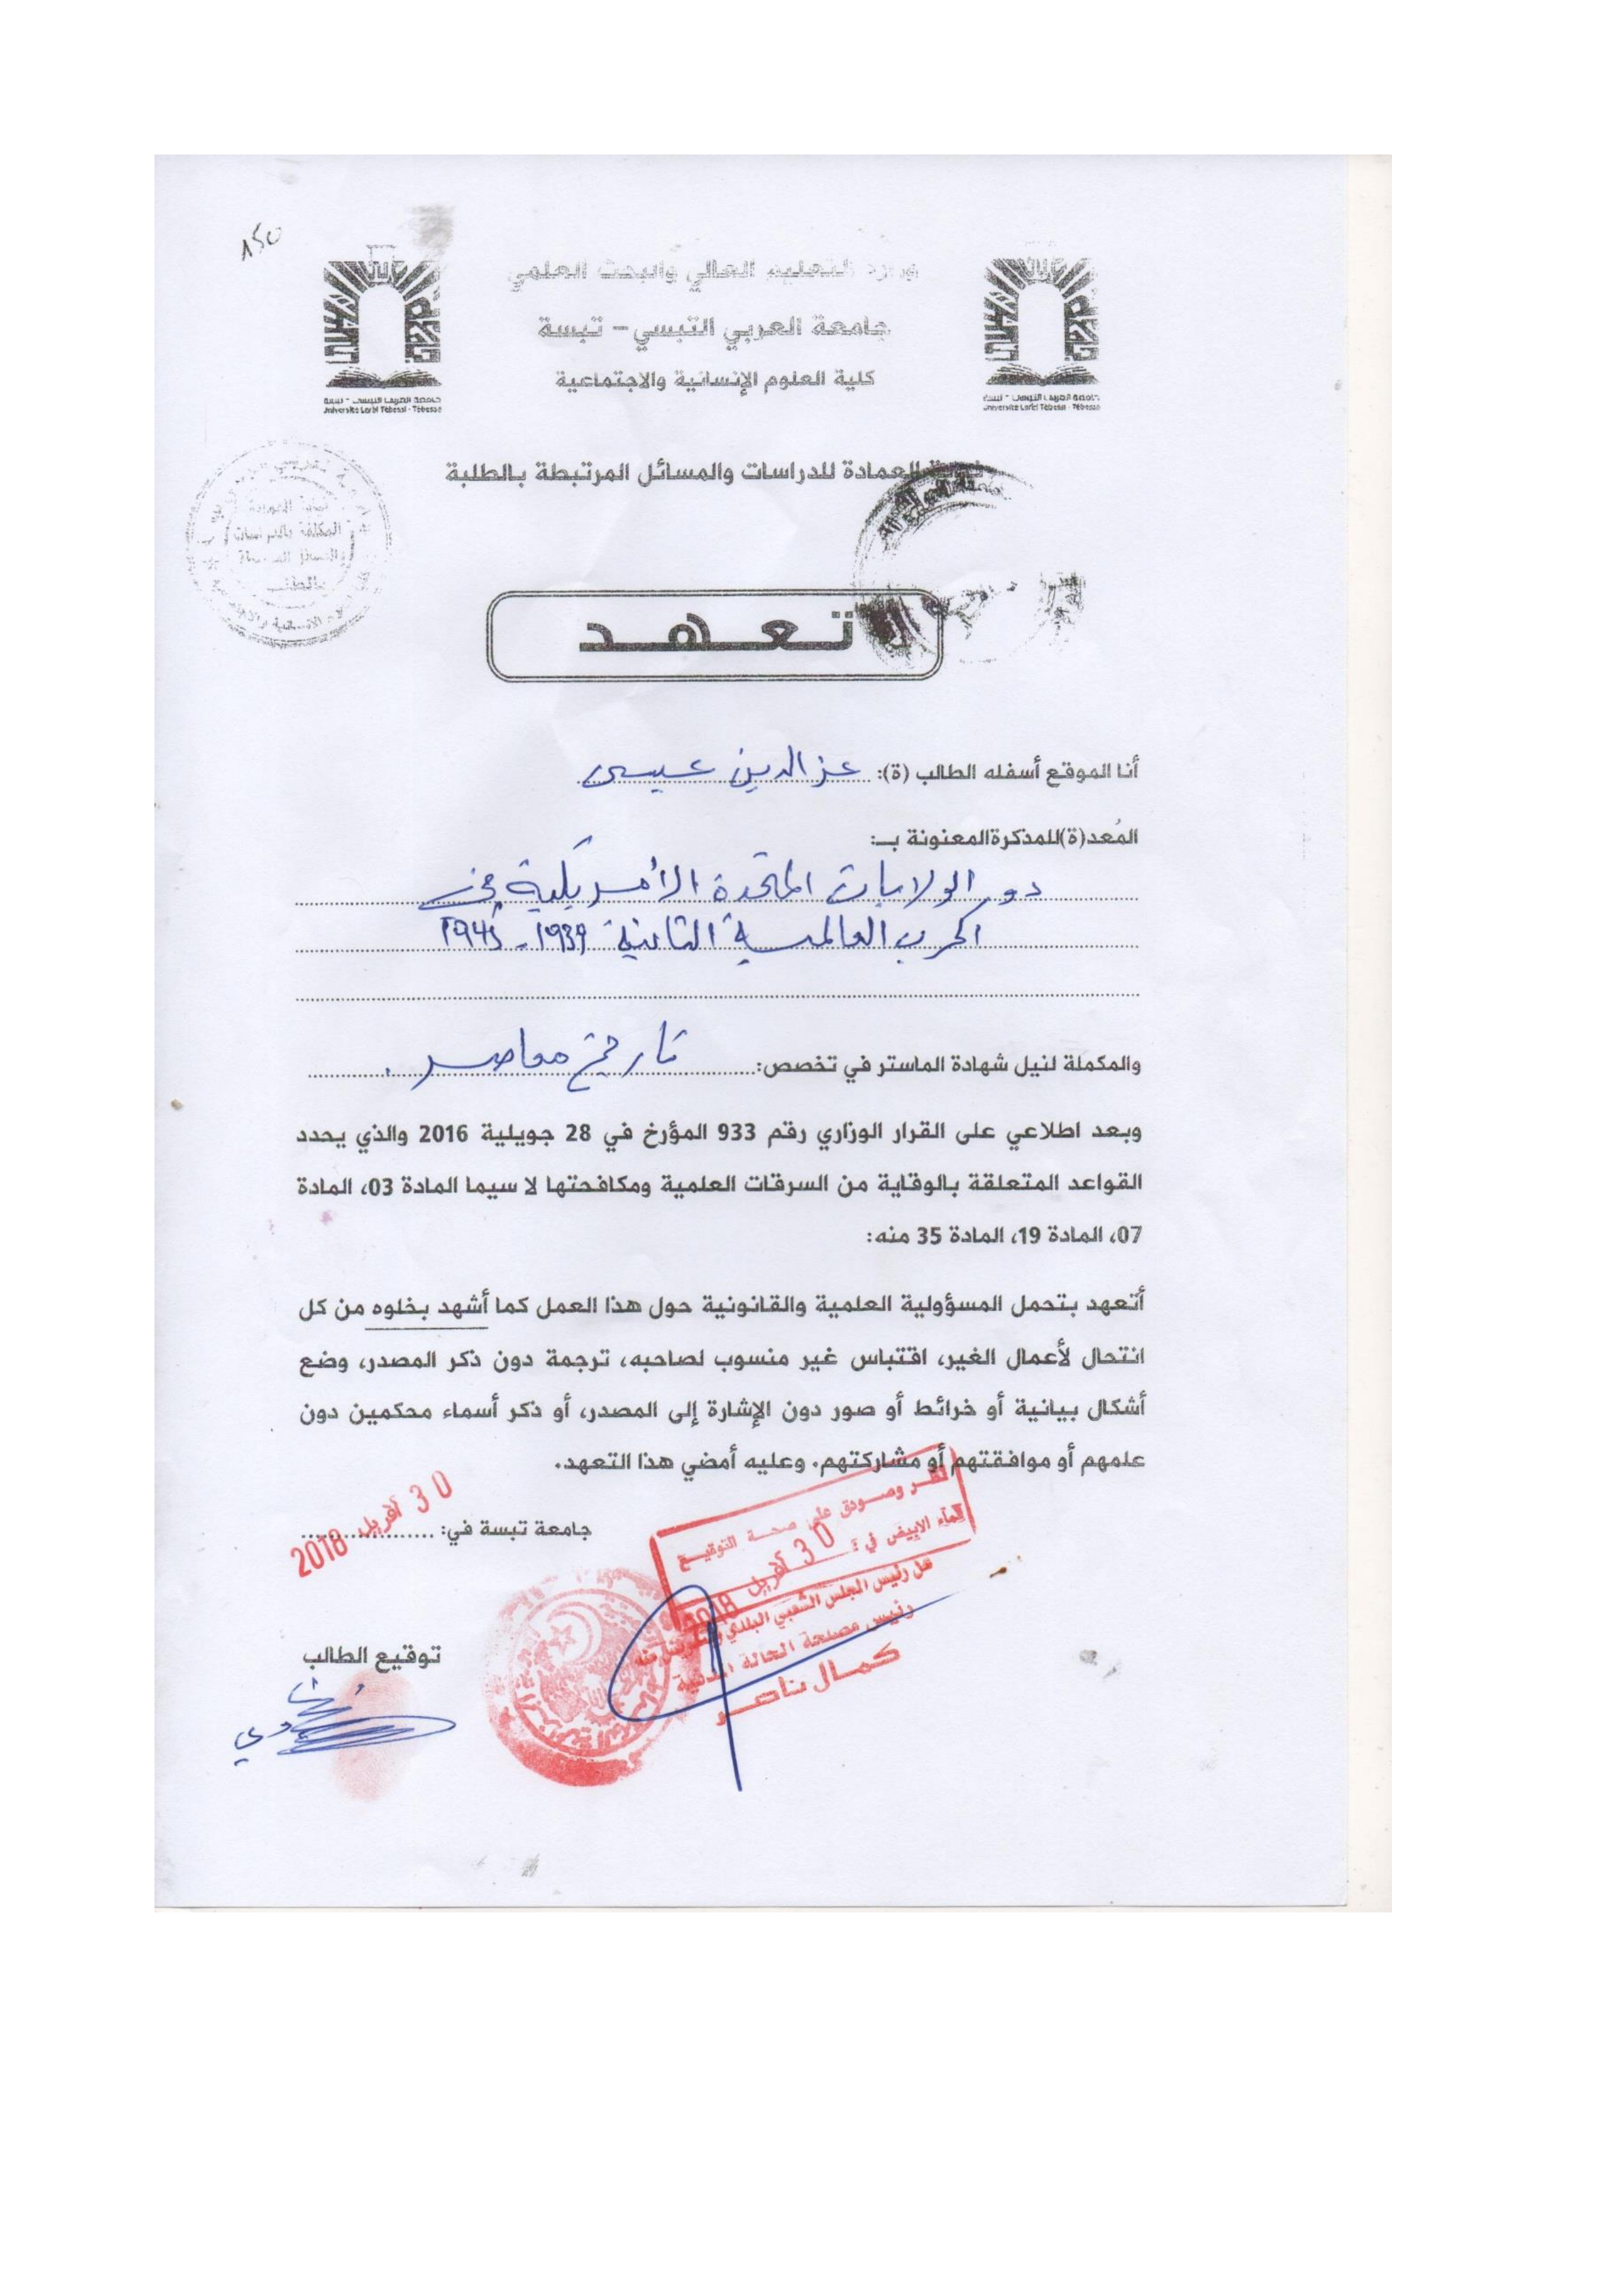 150
وزارة التعليم العالي والبحث العلمي
جامعة العربي التبسي – تبسة
كلية العلوم الإنسانية والاجتماعية
جامعة العربي التبسي - تبسة
Université Larbi Tébessi - Tébessa
جامعة العربي التبسي - تبسة
Université Larbi Tébessi - Tébessa
نيابة العمادة للدراسات والمسائل المرتبطة بالطلبة
نيابة العمادة
المكلفة بالدراسات
والمسائل المرتبطة
بالطلبة
تـعـهـد
أنا الموقع أسفله الطالب (ة): عز الدين عيسى
المُعد(ة)للمذكرةالمعنونة بـ:
دور الولايات المتحدة الأمريكية في
الحرب العالمية الثانية 1939-1945
والمكملة لنيل شهادة الماستر في تخصص: تاريخ معاصر.
وبعد اطلاعي على القرار الوزاري رقم 933 المؤرخ في 28 جويلية 2016 والذي يحدد
القواعد المتعلقة بالوقاية من السرقات العلمية ومكافحتها لا سيما المادة 03، المادة
07، المادة 19، المادة 35 منه:
أتعهد بتحمل المسؤولية العلمية والقانونية حول هذا العمل كما أشهد بخلوه من كل
انتحال لأعمال الغير، اقتباس غير منسوب لصاحبه، ترجمة دون ذكر المصدر، وضع
أشكال بيانية أو خرائط أو صور دون الإشارة إلى المصدر، أو ذكر أسماء محكمين دون
علمهم أو موافقتهم أو مشاركتهم. وعليه أمضي هذا التعهد.
جامعة تبسة في: 30 أفريل 2018
نظـر وصـودق على صحـة التوقيـع
الماء الابيض في : 30 أفريل 2018
عن رئيس المجلس الشعبي البلدي
رئيس مصلحة الحالة المدنية
كمـال ناصـر
توقيع الطالب